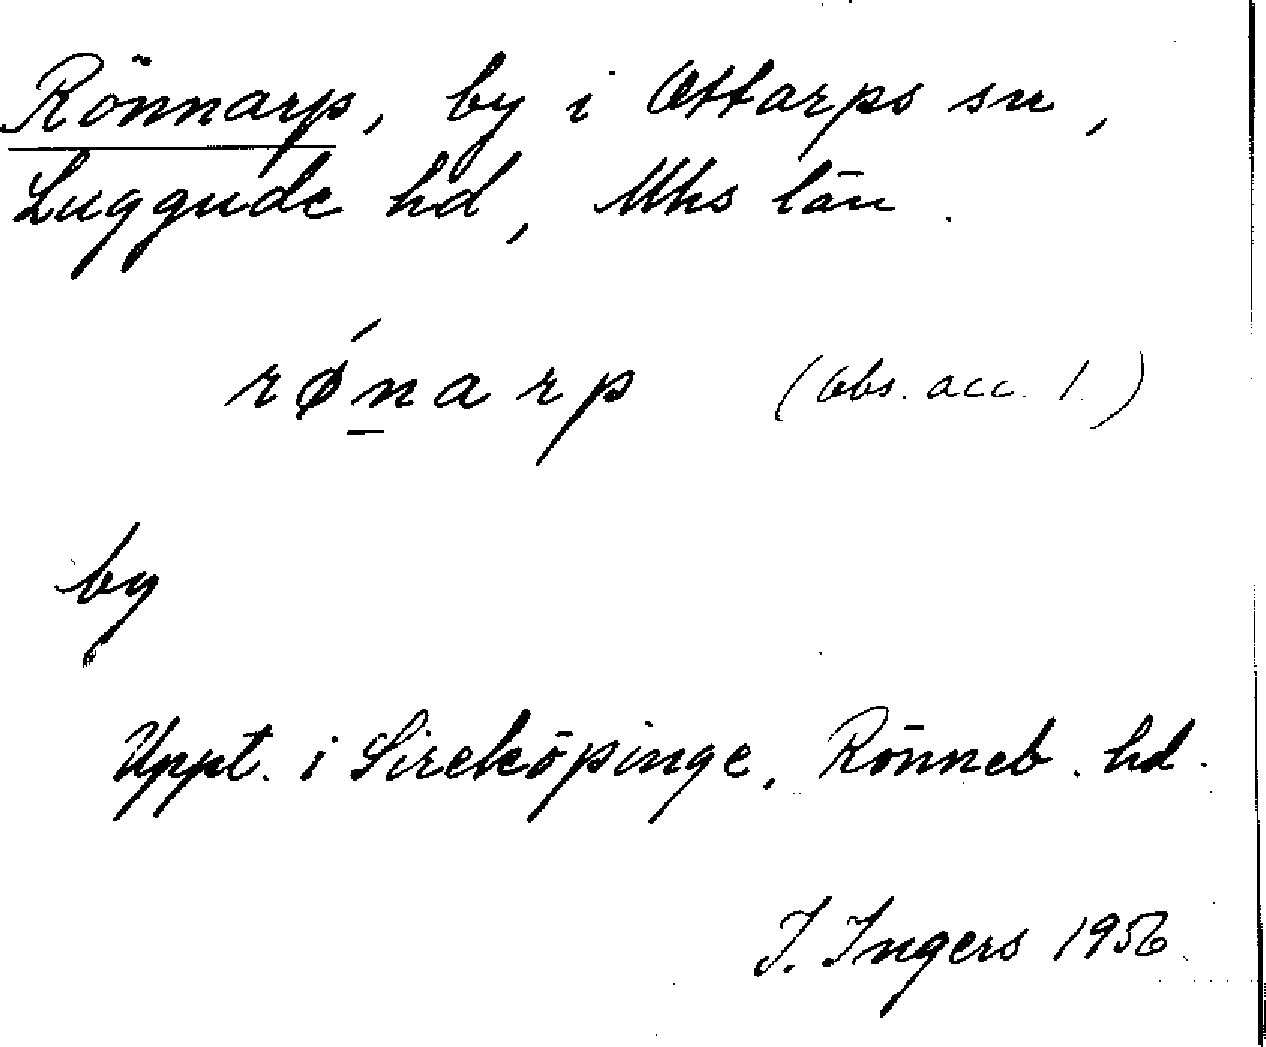 Rönnarp, by i Ottarps sn,
Luggude hd, Mhs län.
rǿn̲arp (obs. acc. 1.)
by
Uppt. i Sireköpinge, Rönneb. hd.
I. Ingers 1956